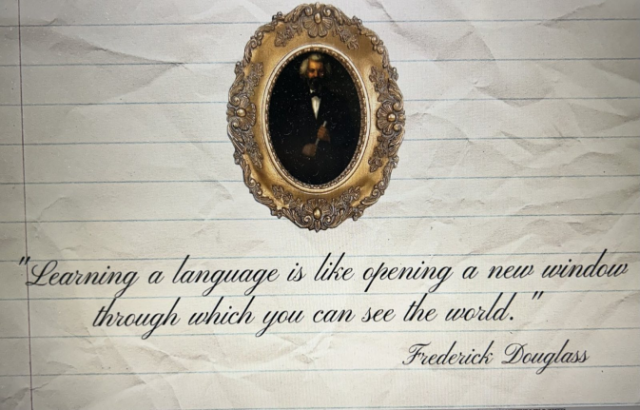 "Learning a language is like opening a new window
through which you can see the world."
Frederick Douglass